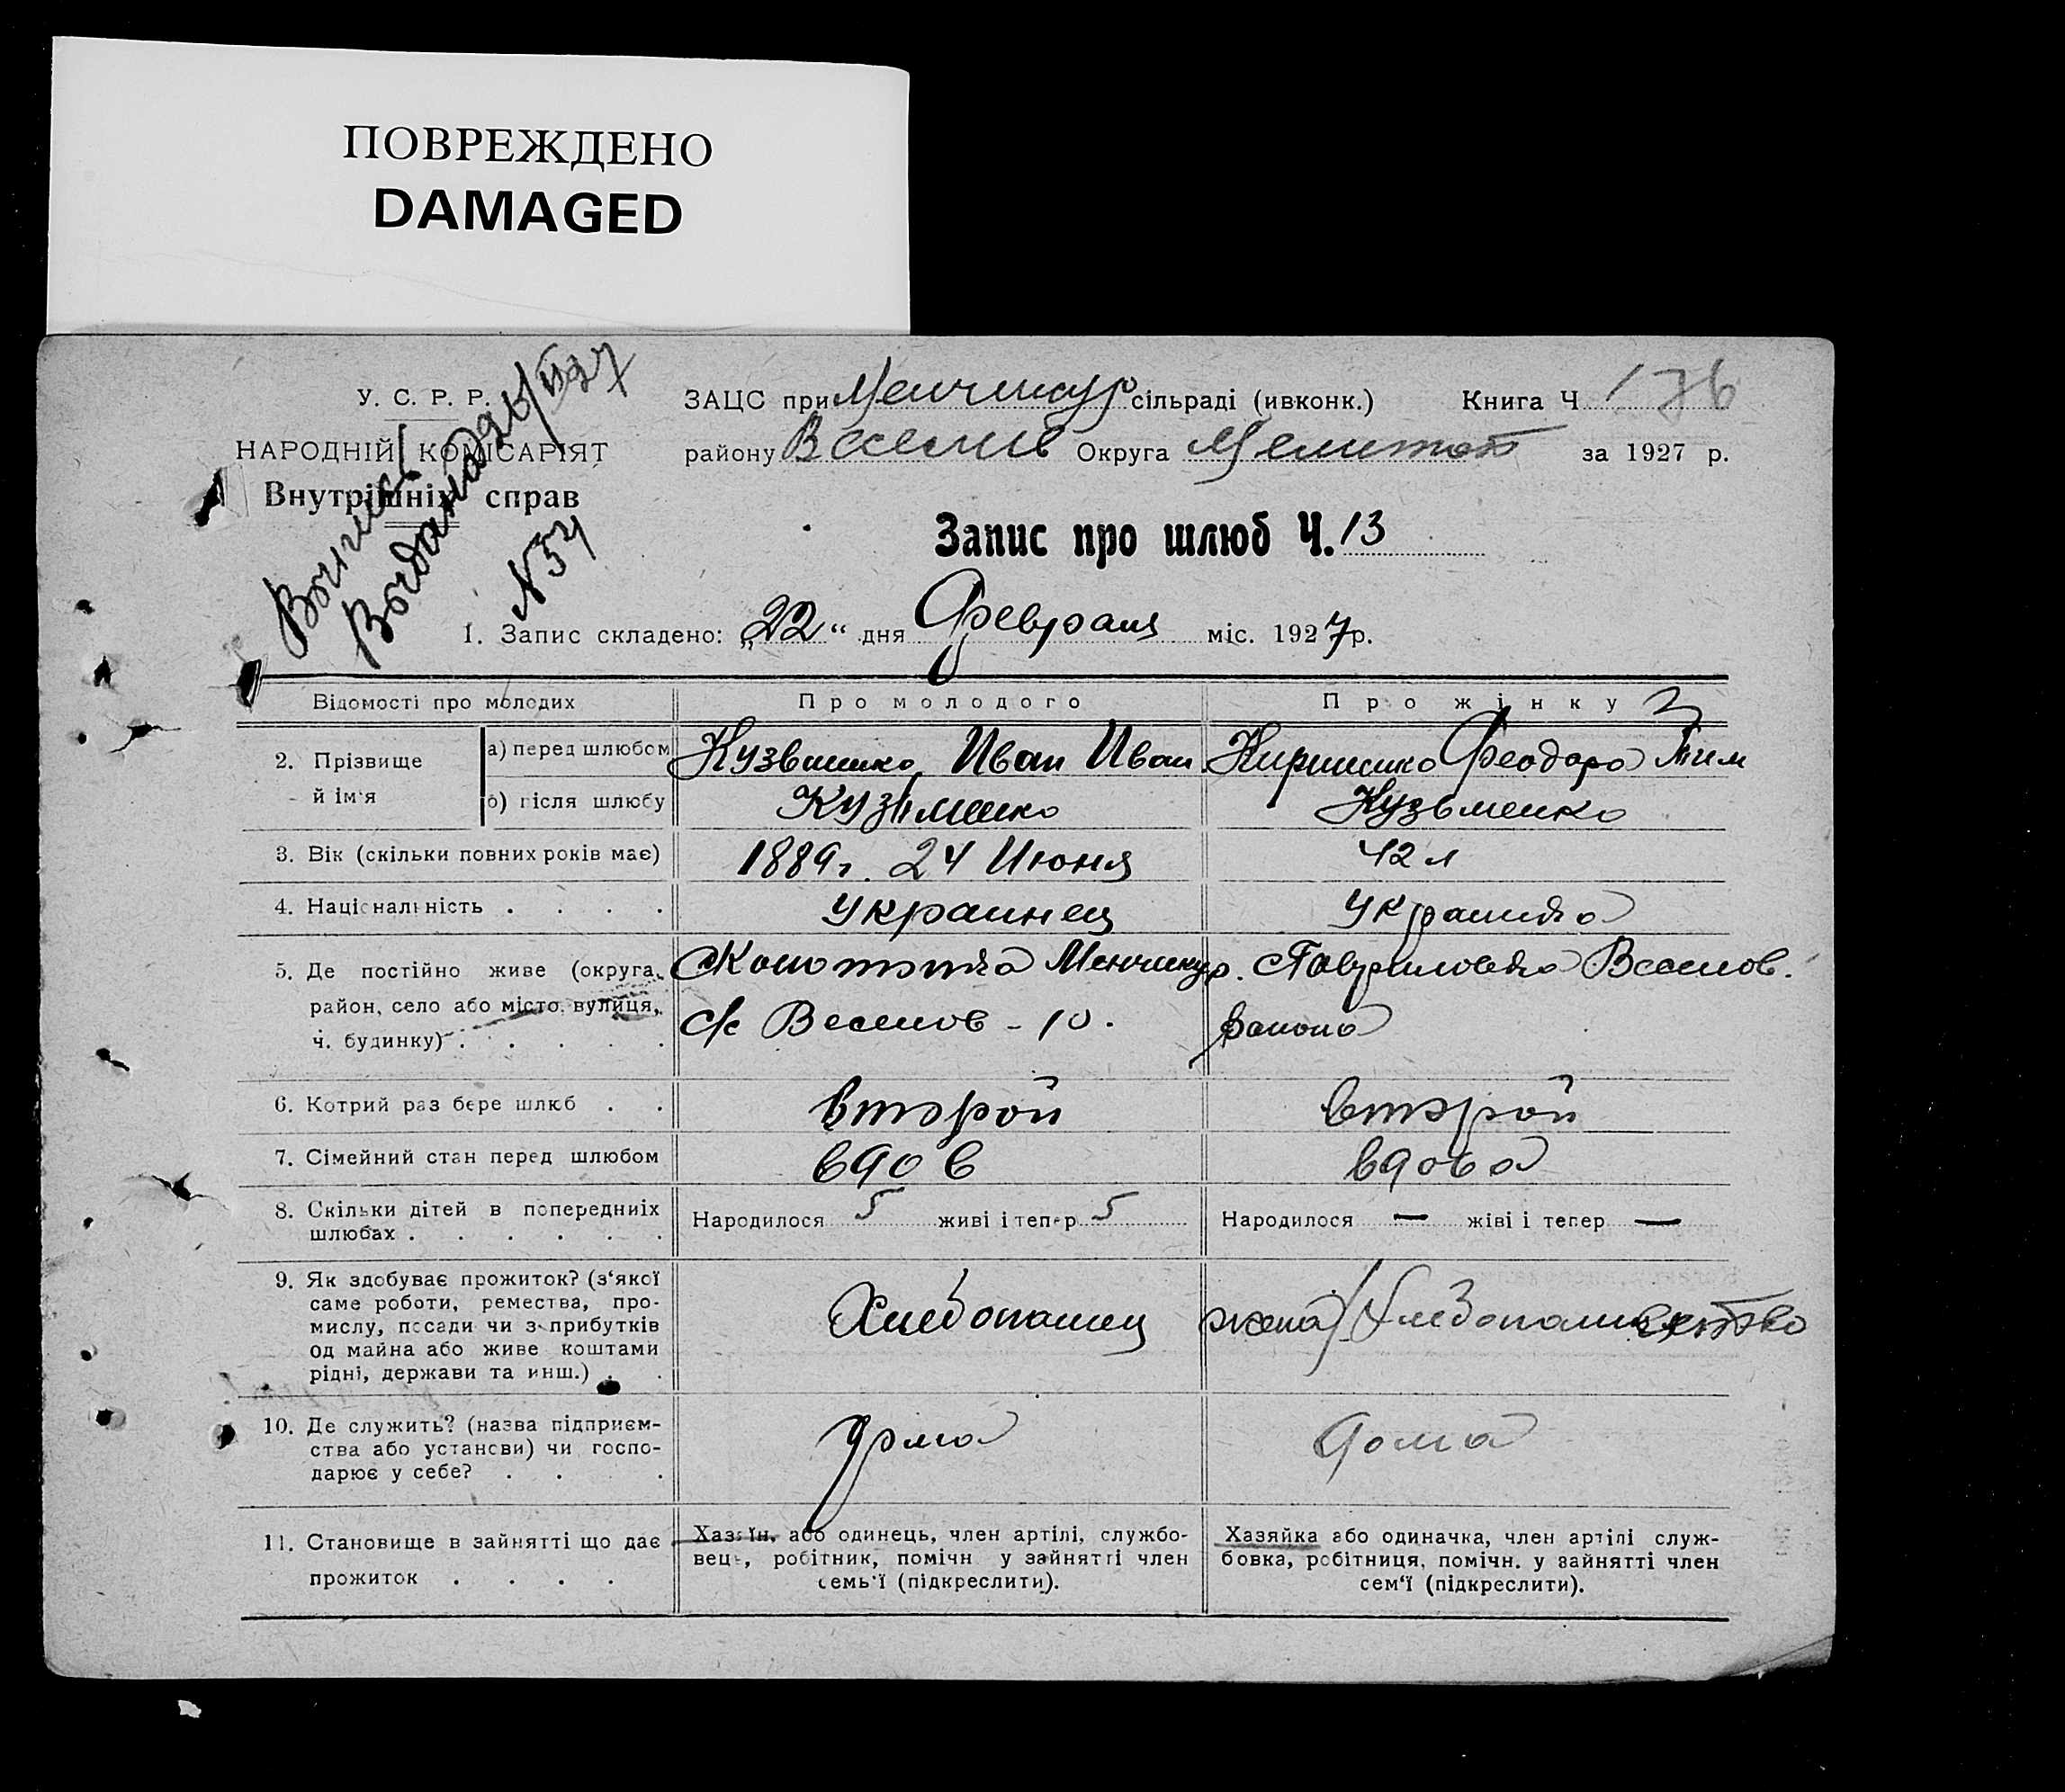 ПОВРЕЖДЕНО
DAMAGED
У. С. Р. Р.
НАРОДНІЙ КОМІСАРІЯТ
Внутрішніх справ
N 54
ЗАЦС при Менчикур сільраді (ивконк.) Книга Ч 176
району Веселів Округа Мелитоп за 1927 р.
Запис про шлюб Ч. 13
1. Запис складено: „22“ дня Февраля міс. 1927 р.
Відомості про молодих Про молодого Про жінку
2. Прізвище й ім‘я
а) перед шлюбом Кузьменко Иван Иван. Кириленко Феодора Тим
б) після шлюбу Кузьменко Кузьменко
3. Вік (скільки повних років має) 1889 г. 24 Июня 42 л
4. Національність . . . . Украинец Украинка
5. Де постійно живе (округа, Менчикур. Гавриловка Веселов.
район, село або місто, вулиця, с/с Веселов - 10. района
ч. будинку) . . . . .
6. Котрий раз бере шлюб . . второй второй
7. Сімейний стан перед шлюбом вдов вдова
8. Скільки дітей в попередніх Народилося 5 живі і тепер 5 Народилося — живі і тепер —
шлюбах . . . . . .
9. Як здобуває прожиток? (з‘якої
саме роботи, ремества, про-
мислу, посади чи з прибутків Хлебопашец жена/хлебопашество
од майна або живе коштами
рідні, держави та инш.) . .
10. Де служить? (назва підприєм-
ства або установи) чи госпо- дома дома
дарює у себе? . . . .
11. Становище в зайнятті що дає
прожиток . . . .
Хазяїн, або одинець, член артілі, службо-
вець, робітник, помічн у зайнятті член
семь‘ї (підкреслити).
Хазяйка або одиначка, член артілі служ-
бовка, робітниця, помічн. у зайнятті член
сем‘ї (підкреслити).